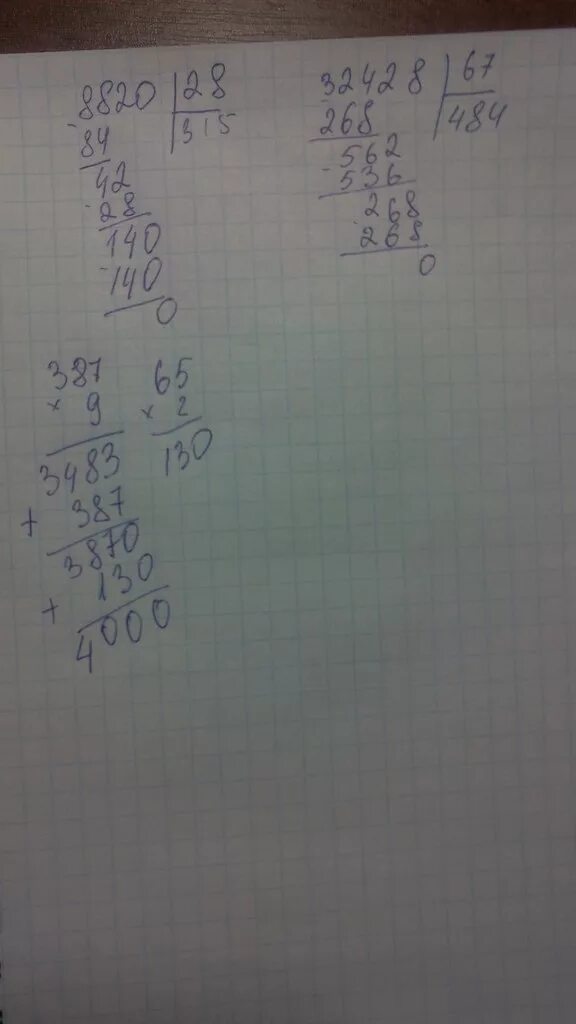 8820 | 28
- 84 | 315
42
- 28
140
- 140
0
32428 | 67
- 268 | 484
562
- 536
268
- 268
0
387
× 9
3483
+ 387
3870
+ 130
4000
65
× 2
130